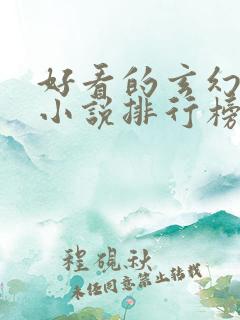 好看的玄幻
小说排行榜
程砚秋
未经同意禁止转载